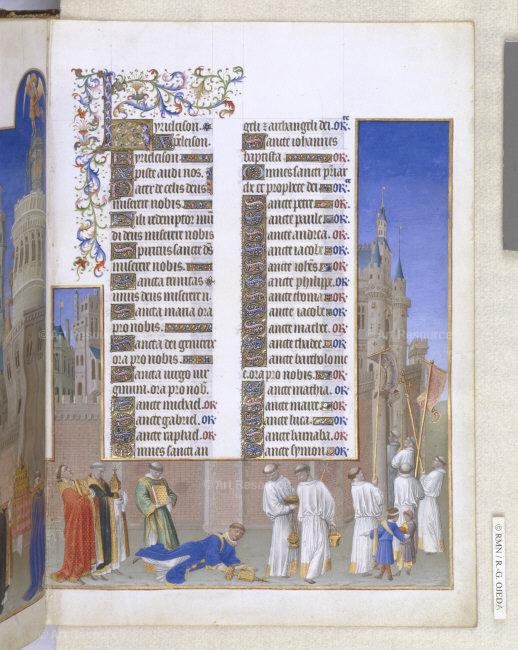 Kyrieleison.
Xpeleison.
Kyrieleison
Xpiste audi nos.
Pater de celis deus
miserere nobis.
Fili redemptor mū
di deus miserere nobis
Spiritus sancte ds
miserere nobis.
Sancta trinitas
unus deus miserere n̄
Sancta maria ora
pro nobis.
Sancta dei genitrix
ora pro nobis.
Sancta virgo vir
ginum. ora pro nob.
Sancte michael. or
Sancte gabriel. or
Sancte raphael. or
Omnes sancti an
geli z archangeli dei. or
Sancte iohannes
baptista or
Omnes sancti patriar
che et prophete dei or
Sancte petre or
Sancte paule or
Sancte andrea. or
Sancte iacobe or
Sancte iohēs or
Sancte philippe. or
Sancte thoma or
Sancte iacobe or
Sancte mathee. or
Sancte thadee or
Sancte bartholome
e. ora pro nobis or
Sancte mathia. or
Sancte marce or
Sancte luca or
Sancte barnaba. or
Sancte symon or
© Art Resource
© RMN / R.-G. OJEDA